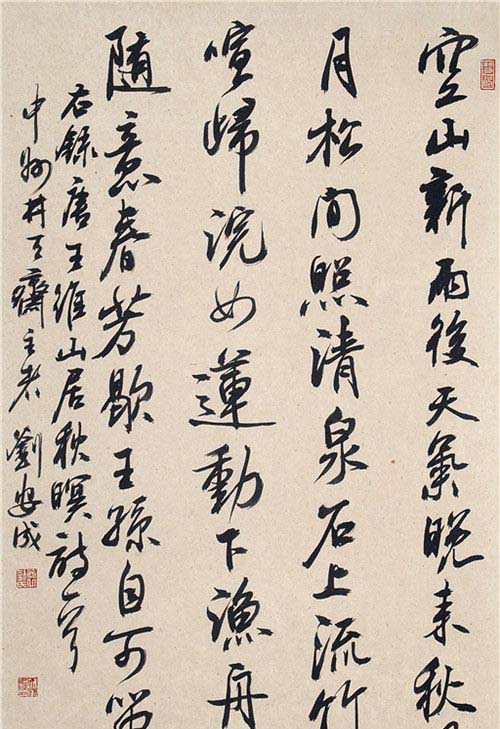 空山新雨後天氣晚来秋
月松间照清泉石上流竹
喧歸浣女蓮動下漁舟
隨意春芳歇王孫自可留
右錄唐王維山居秋暝詩一首
中州井天齋主者劉安成